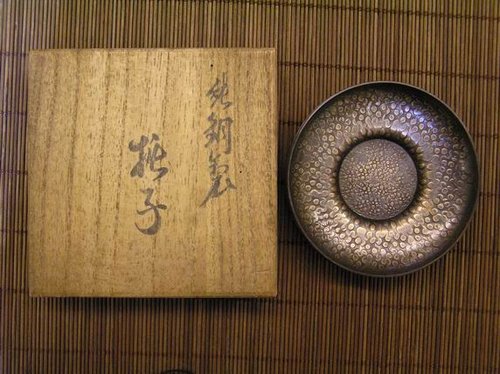 純銅製
托子